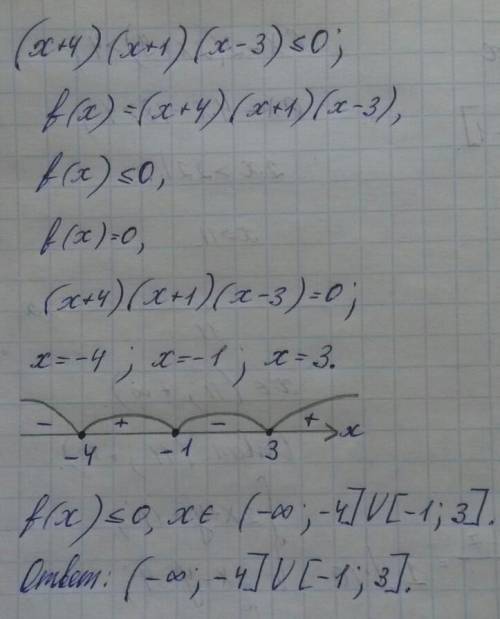 (x+4)(x+1)(x-3)≤0;
f(x)=(x+4)(x+1)(x-3),
f(x)≤0,
f(x)=0,
(x+4)(x+1)(x-3)=0;
x=-4 ; x=-1 ; x=3.
- + - + x
-4 -1 3
f(x)≤0, x∈ (-∞; -4]∪[-1; 3].
Ответ: (-∞; -4]∪[-1; 3].